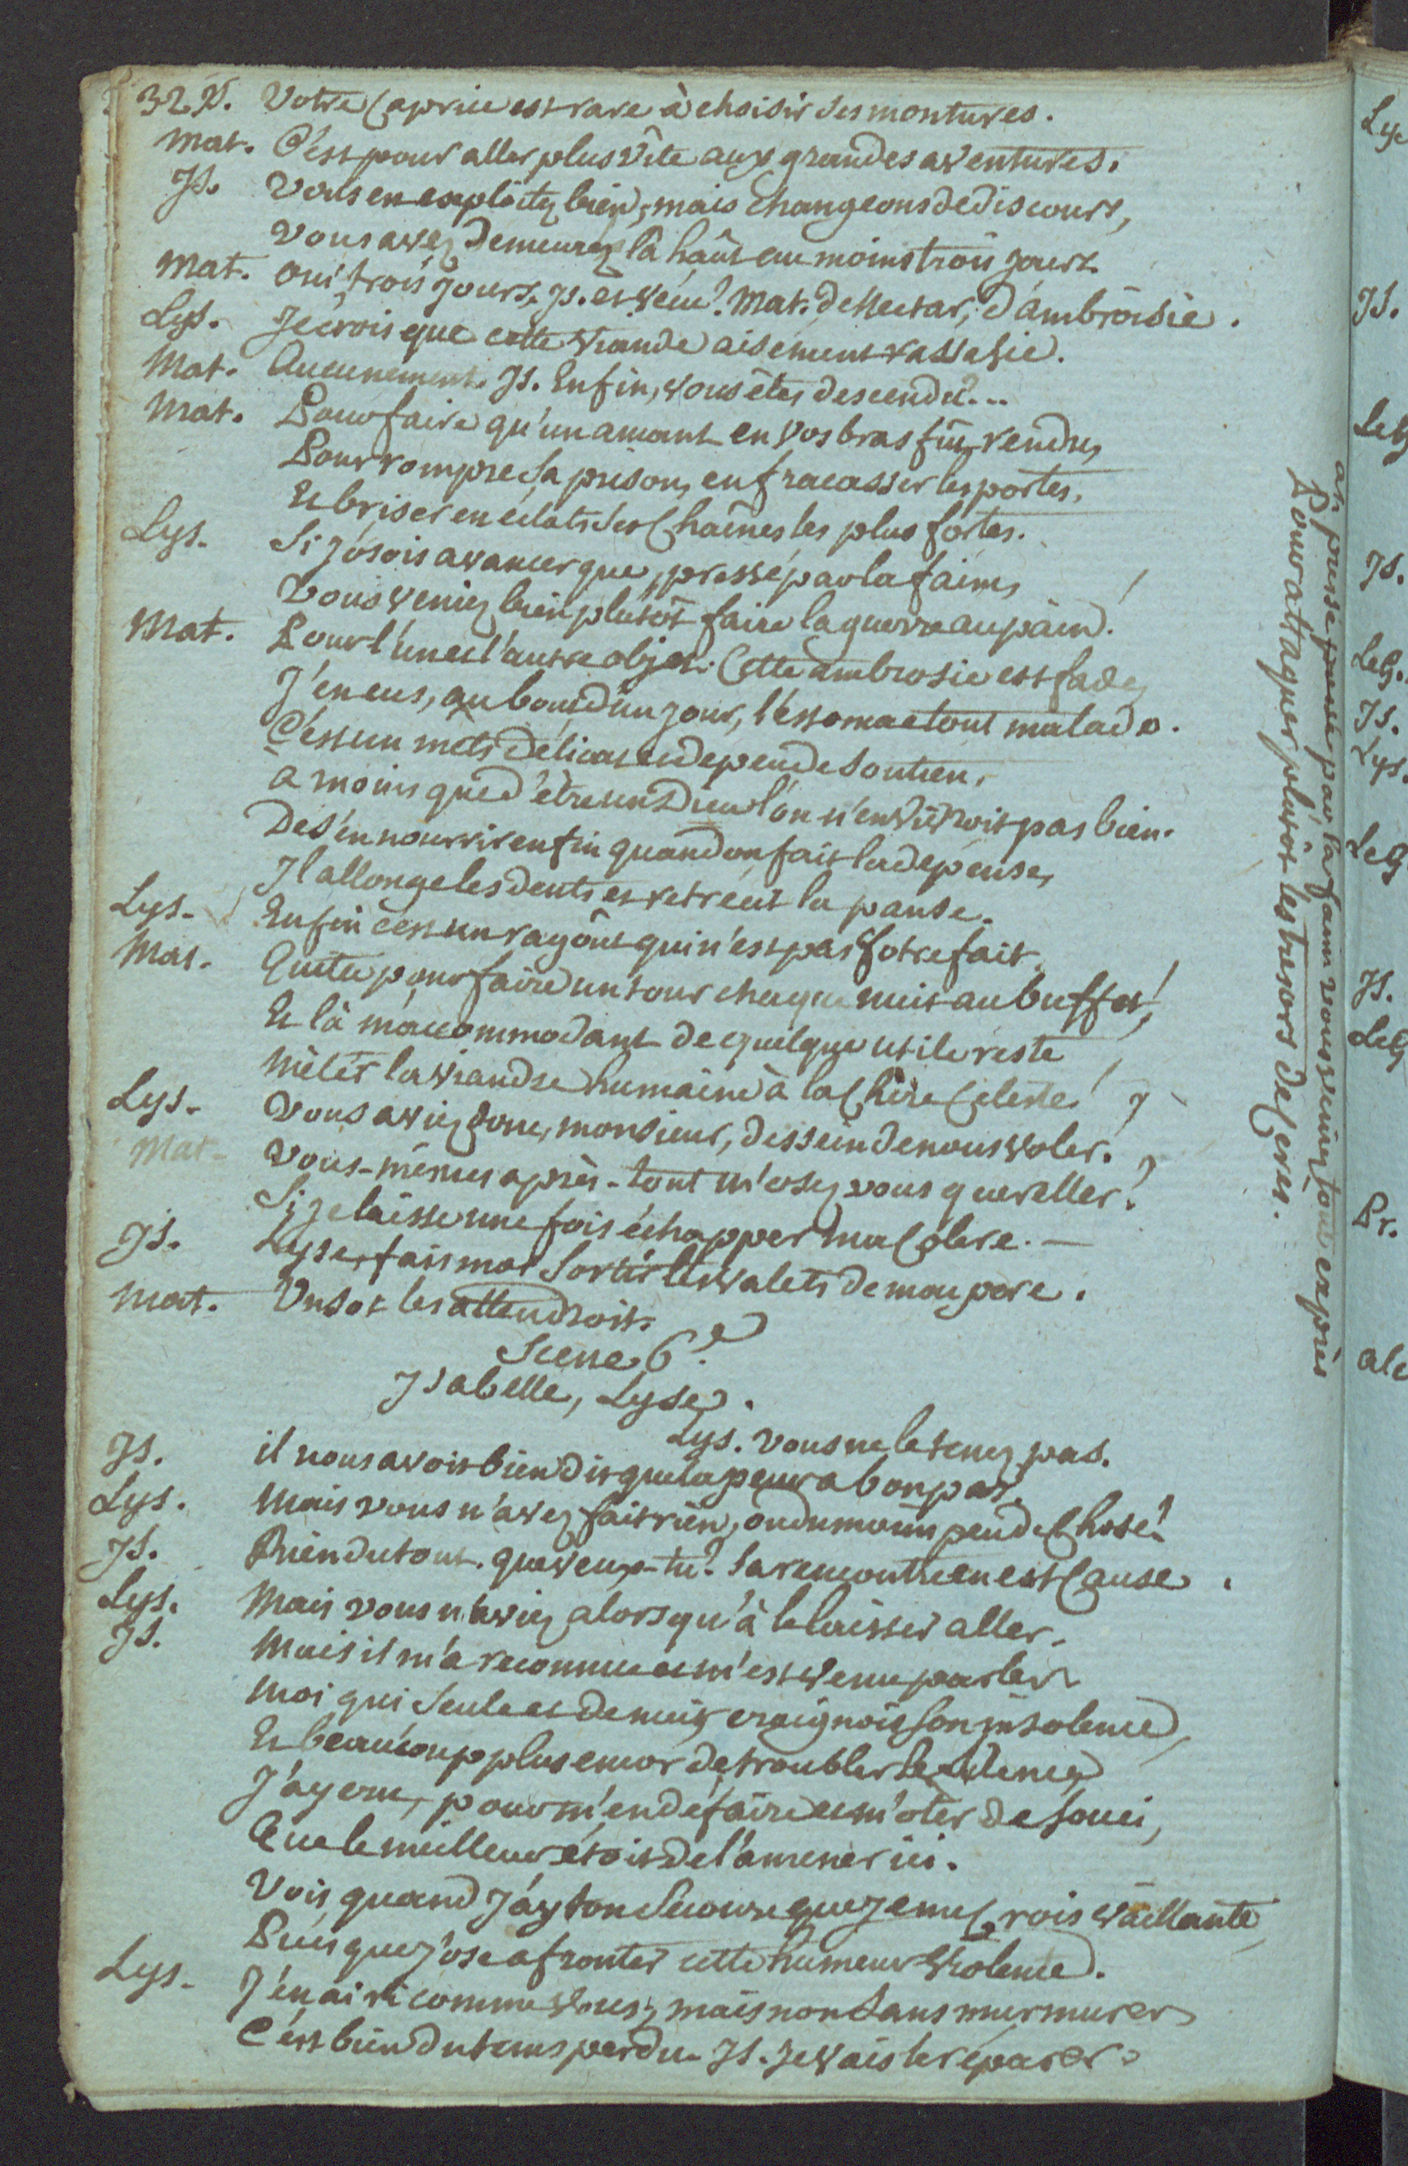 32. Is. Votre Caprice est rare à choisir des montures.
Mat. C'est pour aller plus vite aux grandes aventures.
Is. Vous en exploitez bien, mais changeons de discours,
Vous avez demeurez là haut au moins trois jours.
Mat. Oui trois jours. Is. et vécu? Mat. de Nectar, d'ambroisie.
Lys. Je crois que cette viande aisément rassasie.
Mat. Aucunement. Is. Enfin, vous êtes descendu?...
Mat. Pour faire qu'un amant en vos bras fût rendu,
Pour rompre sa prison, en fracasser les portes,
Et briser en éclats ses Chaînes les plus fortes.
Lys. Si j'osois avancer que, pressé par la faim,
Vous veniez bien plutôt faire la guerre au pain!
Mat. Pour l'un et l'autre objet. Cette ambrosie est fade,
J'en eus, au bout d'un jour, l'estomac tout malade.
C'est un mets délicat et de peu de soutien,
à moins que d'être un Dieu l'on n'en vivroit pas bien.
De s'en nourrir enfin quand on fait la dépense,
Il allonge les dents et rétrécit la panse.
Lys. Enfin c'est un ragoût qui n'est pas votre fait.
Mat. Quitte pour faire un tour chaque nuit au buffet!
Et là m'accommodant de quelque utile reste
Mêler la viande humaine à la Chère Céleste!
Lys. Vous aviez donc, monsieur, dessein de nous voler?
Mat. Vous-mêmes après-tout m'osez vous quereller?
Si je laisse une fois échapper ma Colere. —
Is. Lyse, fais moi sortir les valets de mon pere.
Mat. Un sot les attendroit.
Scene 6e.
Isabelle, Lyse.
Lys. Vous ne le tenez pas.
Is. il nous avoit bien dit que la peur a bon pas.
Lys. Mais vous n'avez fait rien, ou du moins peu de Chose?
Is. Rien du tout. que veux-tu? sa rencontre en est Cause.
Lys. Mais vous n'aviez alors qu'à le laisser aller.
Is. Mais il m'a reconnue et m'est venu parler
Moi qui seule et de nuit craignois son insolence,
Et beaucoup plus encor de troubler le silence,
J'ay cru, pour m'en défaire et m'ôter de souci,
Que le meilleur étoit de l'amener ici.
Vois, quand j'ay ton secours que je me Crois vaillante,
Puisque j'ose afronter cette humeur violente.
Lys. J'en ai ri comme vous, mais non sans murmurer
C'est bien du tems perdu. Is. Je vais le réparer.
par la faim vous veniez tout exprès
Pour attaquer plutôt les tresors de Ceres.
Lys
Is.
Is.
Is.
Lys.
Is.
Pr.